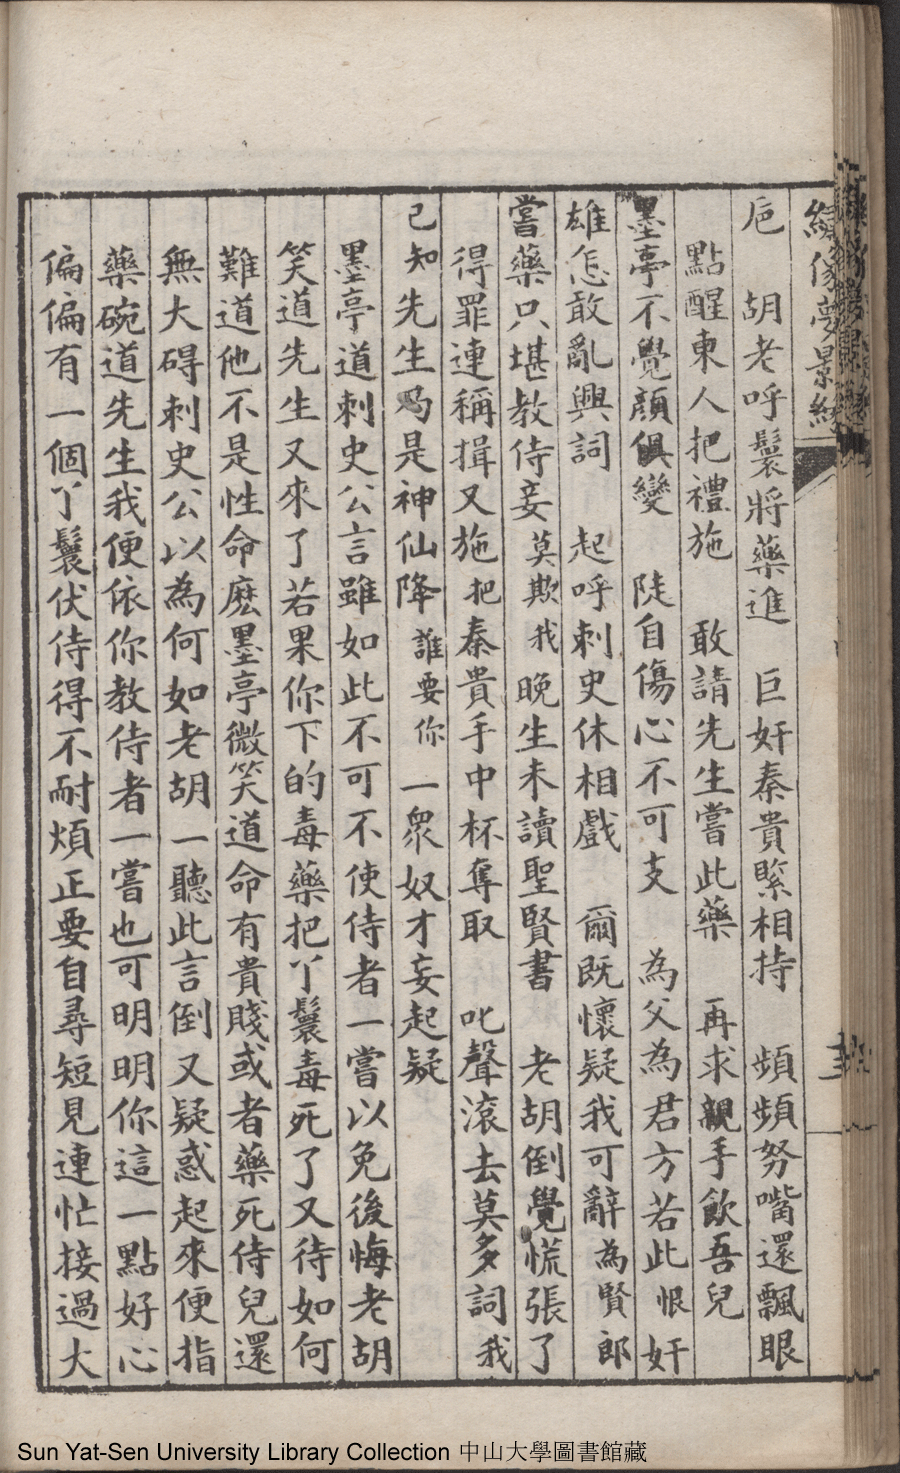 繡像夢景緣
巵　胡老呼鬟將藥進　巨奸秦貴緊相持　頻頻努嘴還飄眼
點醒東人把禮施　敢請先生嘗此藥　再求親手飲吾兒
墨亭不覺顏俱變　陡自傷心不可支　為父為君方若此恨奸
雄怎敢亂興詞　起呼刺史休相戲　爾既懷疑我可辭為賢郎
嘗藥只堪教侍妾莫欺我晚生未讀聖賢書　老胡倒覺慌張了
得罪連稱揖又施把秦貴手中杯奪取　叱聲滾去莫多詞我
已知先生乃是神仙降誰要你一眾奴才妄起疑
墨亭道刺史公言雖如此不可不使侍者一嘗以免後悔老胡
笑道先生又來了若果你下的毒藥把丫鬟毒死了又待如何
難道他不是性命麽墨亭微笑道命有貴賤或者藥死侍兒還
無大碍刺史公以為何如老胡一聽此言倒又疑惑起來便指
藥碗道先生我便依你教侍者一嘗也可明明你這一點好心
偏偏有一個丫鬟伏侍得不耐煩正要自尋短見連忙接過大
Sun Yat-Sen University Library Collection 中山大學圖書館藏